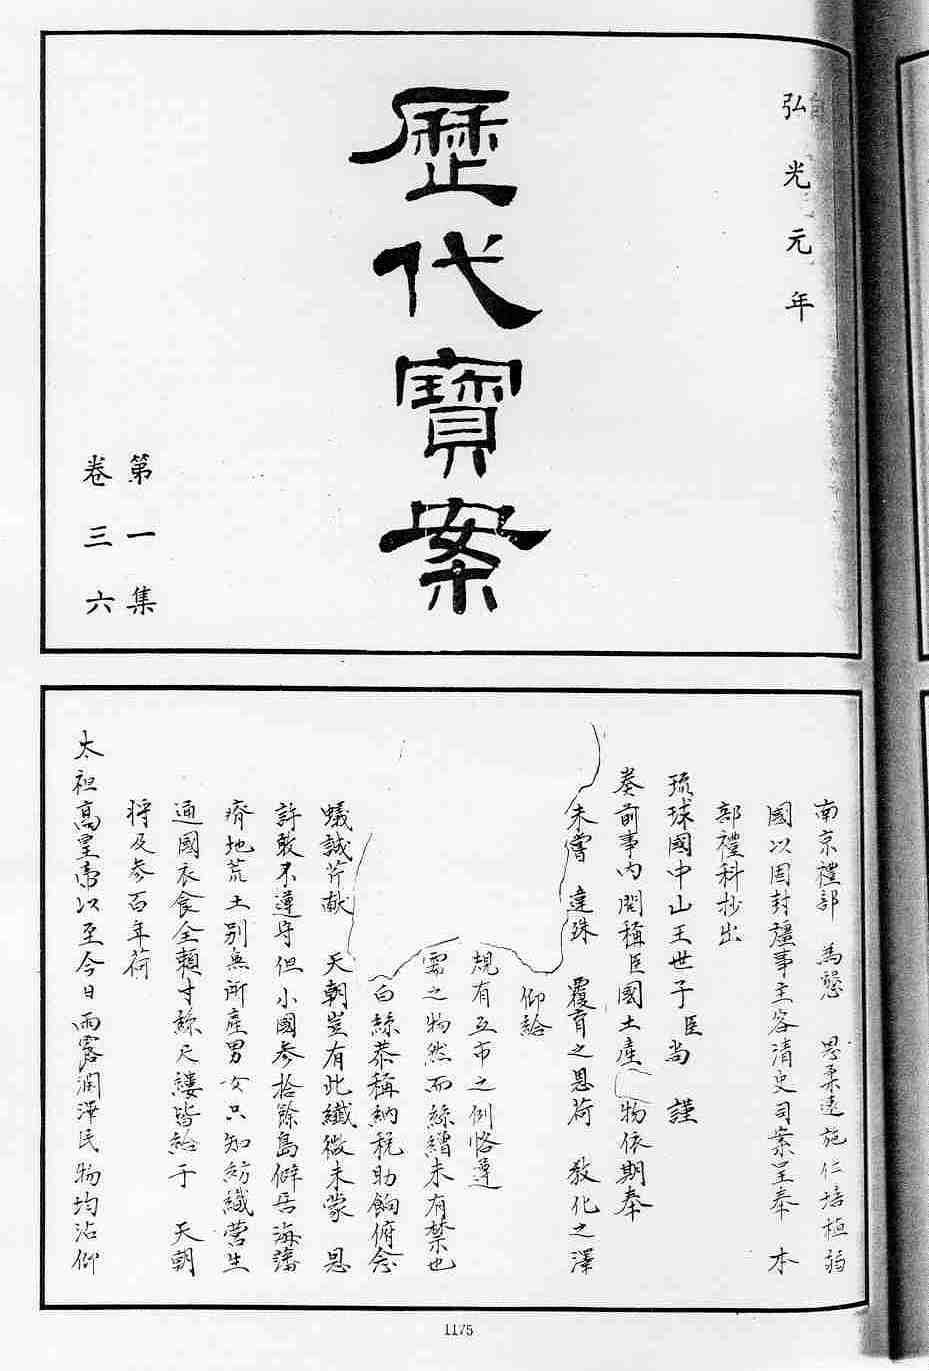 弘光元年
歷代寶案
第一集
卷三六
南京禮部 為懇 恩柔遠施仁培植弱
國以固封疆事主客清吏司案呈奉 本
部禮科抄出
琉球國中山王世子臣尚 謹
奏前事內開稱臣國土產 物依期奉
未嘗 達殊 覆育之恩荷 教化之澤
仰給
規有互市之例恪遵
需之物然而絲繒未有禁也
白絲恭稱納稅助餉俯念
蟻誠芹献 天朝豈有此纖微未蒙 恩
許敢不遵守但小國參拾餘島僻居海藩
瘠地荒土別無所產男女只知紡織營生
通國衣食全賴寸絲尺縷皆給于 天朝
將及參百年荷
太祖高皇帝以至今日雨露潤澤民物均沾仰
1175